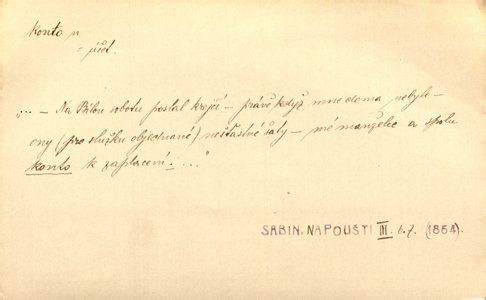 Konto n
= účet.
„... – Na Bílou sobotu poslal krejčí – právě když mne doma nebylo –
ony (pro služku objednané) nešťastné šaty – mé manželce a spolu
konto k zaplacení. ..."
SABIN, NA POUŠTI III. 6.7. (1864).